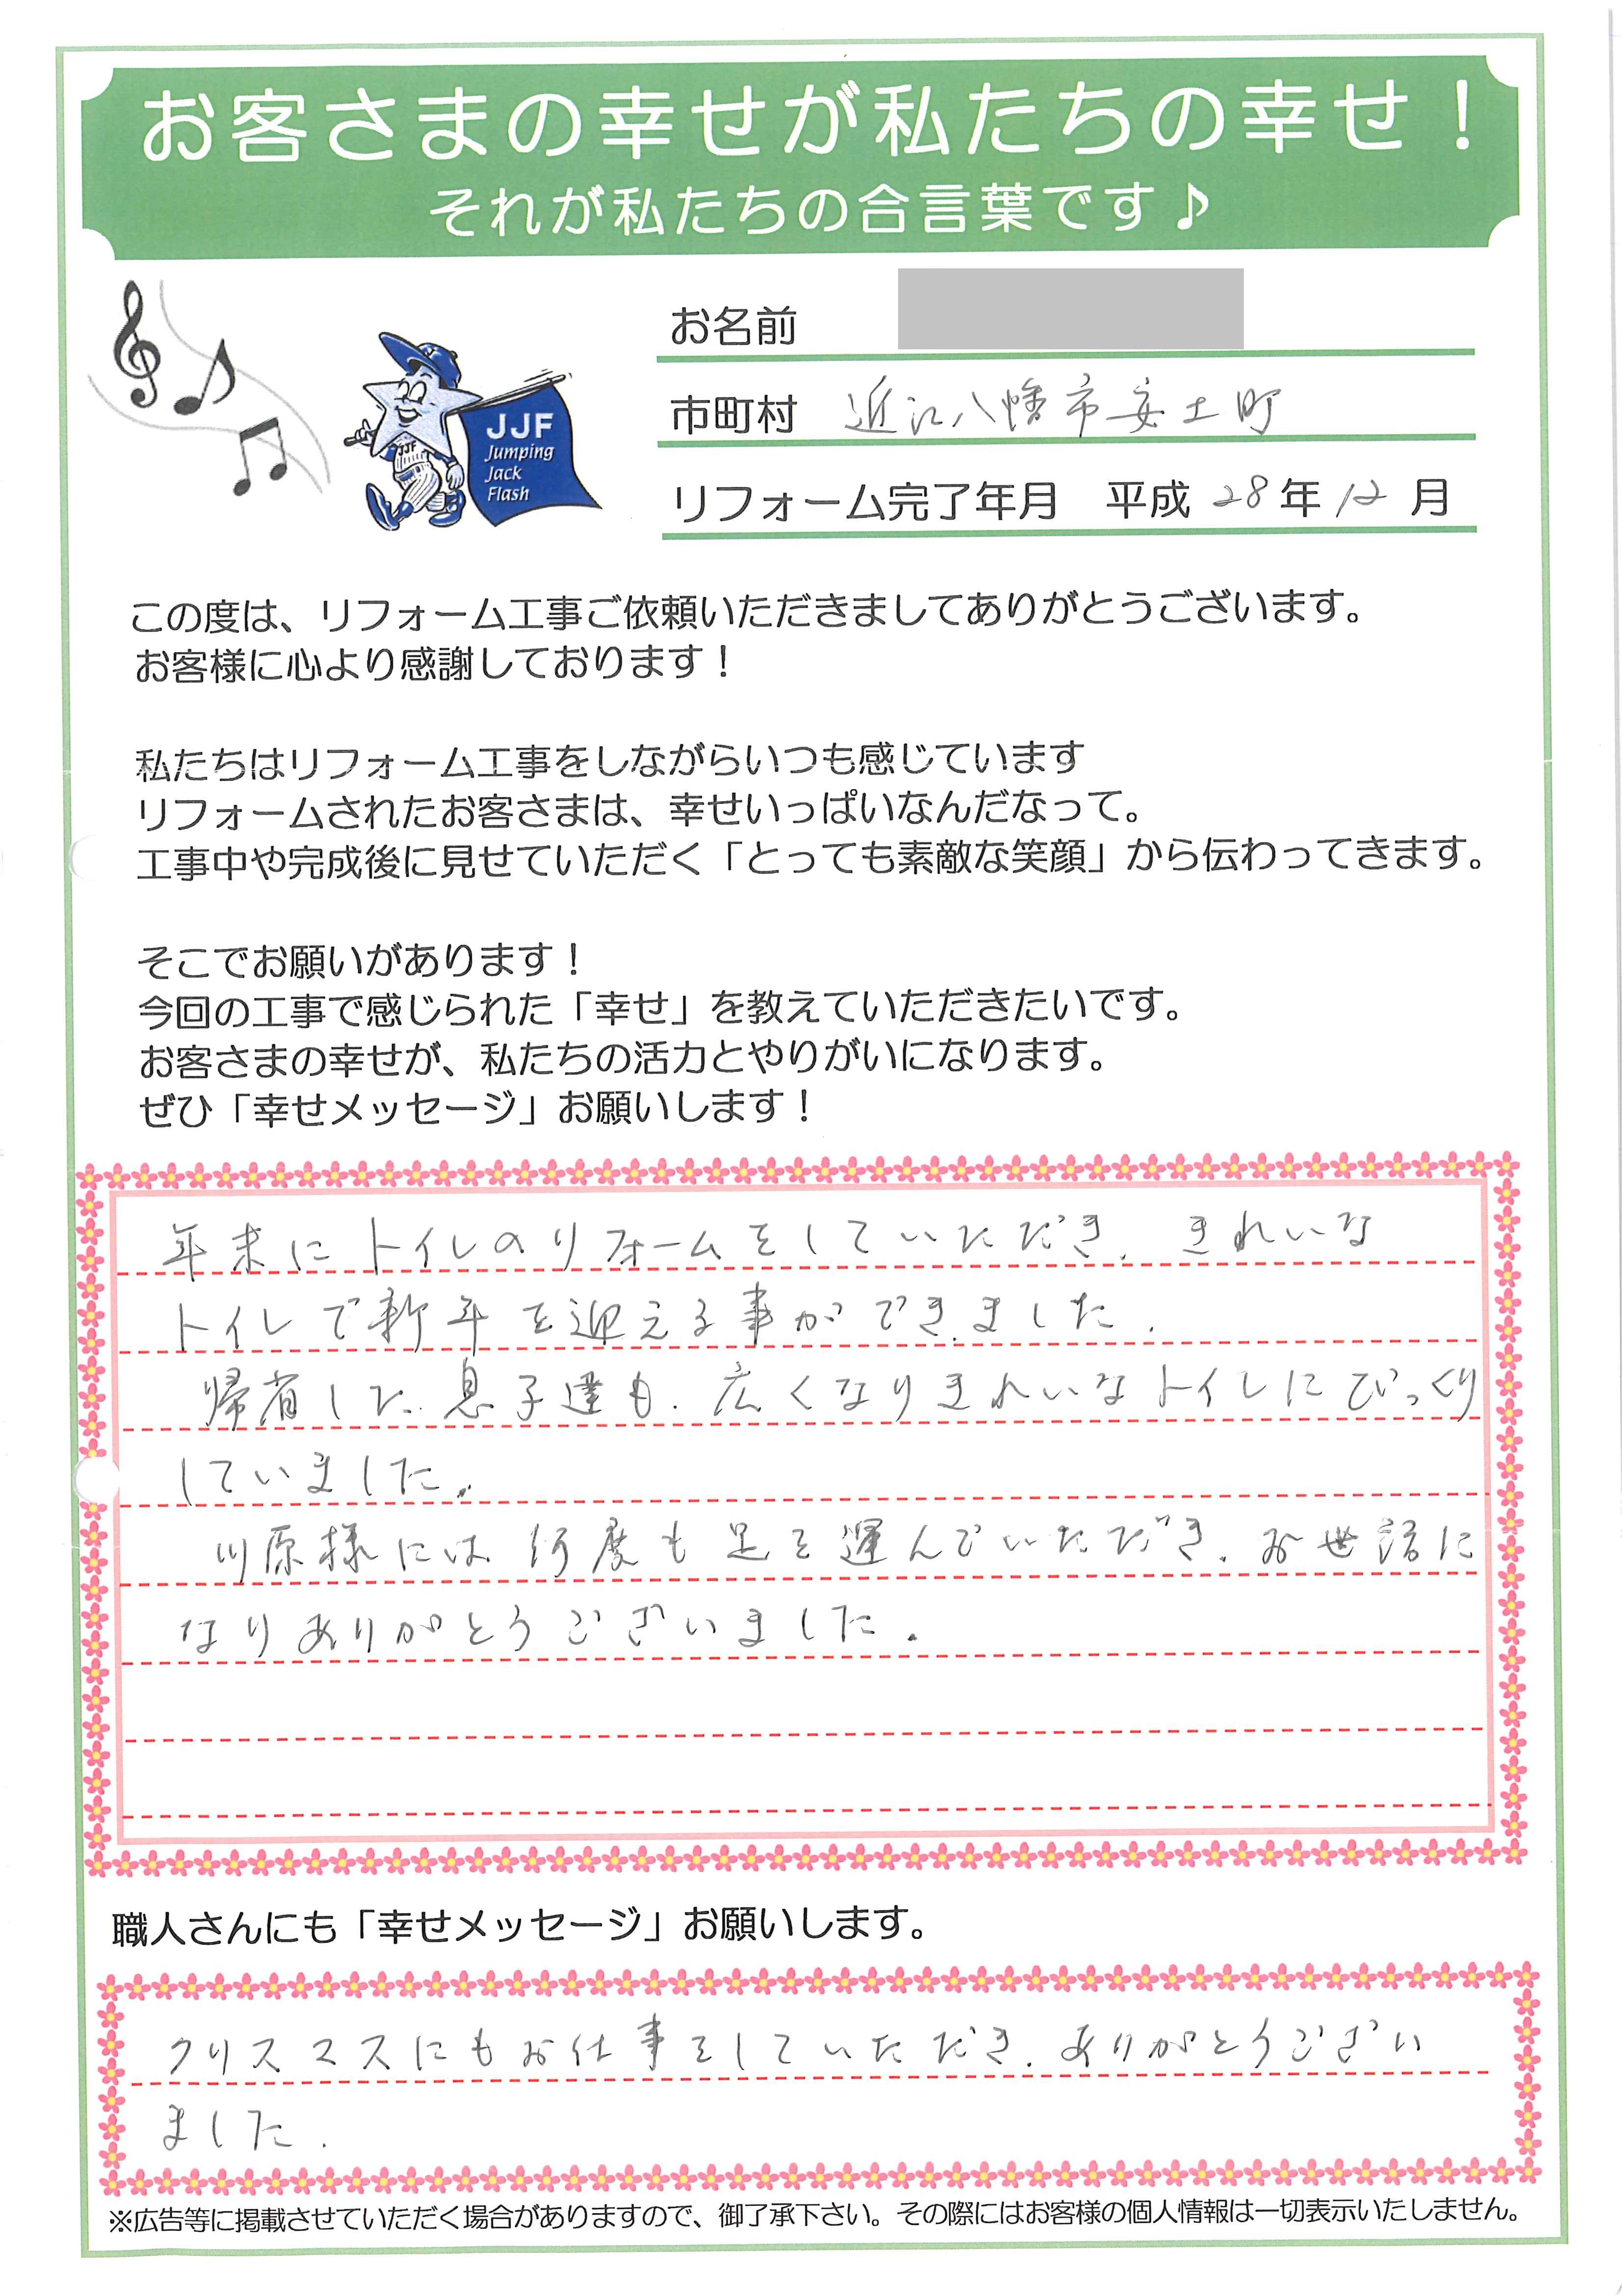 お客さまの幸せが私たちの幸せ！
それが私たちの合言葉です♪
JJF
Jumping
Jack
Flash
JJF
お名前
市町村 近江八幡市安土町
リフォーム完了年月 平成 28 年 12 月
この度は、リフォーム工事ご依頼いただきましてありがとうございます。
お客様に心より感謝しております！
私たちはリフォーム工事をしながらいつも感じています
リフォームされたお客さまは、幸せいっぱいなんだなって。
工事中や完成後に見せていただく「とっても素敵な笑顔」から伝わってきます。
そこでお願いがあります！
今回の工事で感じられた「幸せ」を教えていただきたいです。
お客さまの幸せが、私たちの活力とやりがいになります。
ぜひ「幸せメッセージ」お願いします！
年末にトイレのリフォームをしていただき、きれいな
トイレで新年を迎える事ができました。
帰省した息子達も、広くなりきれいなトイレにびっくり
していました。
川原様には何度も足を運んでいただき、お世話に
なりありがとうございました。
職人さんにも「幸せメッセージ」お願いします。
クリスマスにもお仕事をしていただき、ありがとうござい
ました。
※広告等に掲載させていただく場合がありますので、御了承下さい。その際にはお客様の個人情報は一切表示いたしません。